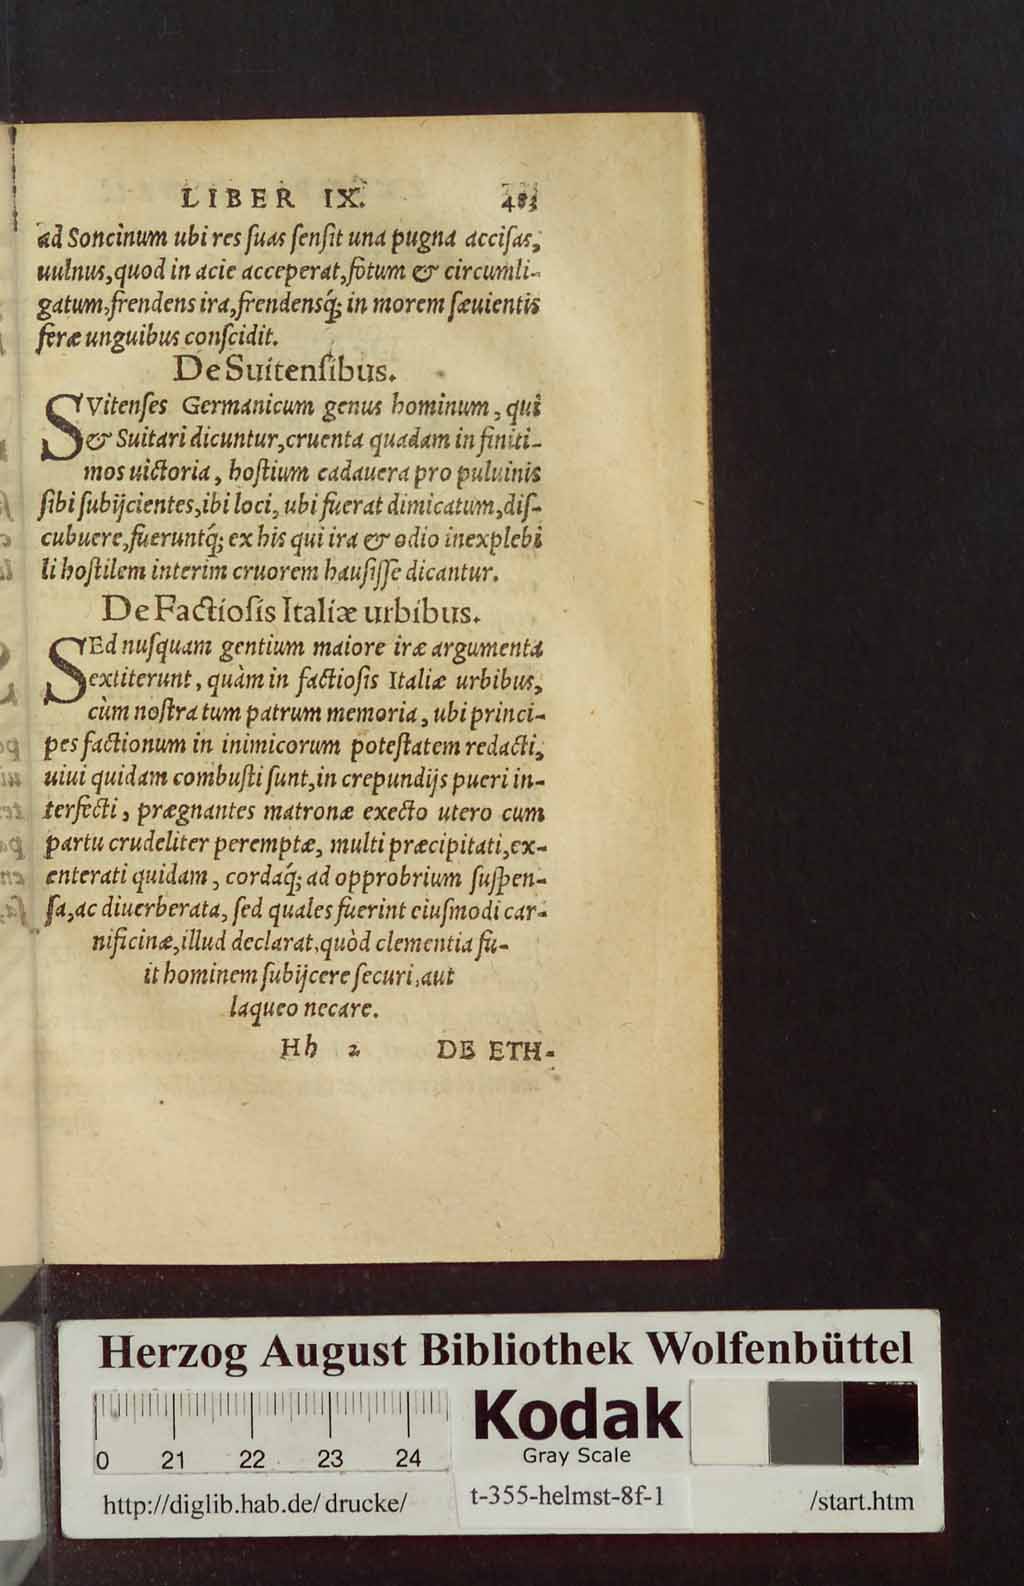 LIBER IX. 483
ad Soncinum ubi res ſuas ſenſit una pugna acciſas,
uulnus, quod in acie acceperat, fotum & circumli-
gatum, frendens ira, frendensq́; in morem ſæuientis
feræ unguibus conſcidit.
De Suitenſibus.
SVitenſes Germanicum genus hominum, qui
& Suitari dicuntur, cruenta quadam in finiti-
mos uictoria, hoſtium cadauera pro puluinis
ſibi ſubijcientes, ibi loci, ubi fuerat dimicatum, diſ-
cubuere, fueruntq́; ex his qui ira & odio inexplebi
li hoſtilem interim cruorem hauſiſſe dicantur.
De Factioſis Italiæ urbibus.
SEd nuſquam gentium maiore iræ argumenta
extiterunt, quàm in factioſis Italiæ urbibus,
cùm noſtra tum patrum memoria, ubi princi-
pes factionum in inimicorum poteſtatem redacti,
uiui quidam combuſti ſunt, in crepundijs pueri in-
terfecti, prægnantes matronæ execto utero cum
partu crudeliter peremptæ, multi præcipitati, ex-
enterati quidam, cordaq́; ad opprobrium ſuſpen-
ſa, ac diuerberata, ſed quales fuerint eiuſmodi car-
nificinæ, illud declarat, quòd clementia fu-
it hominem ſubijcere ſecuri, aut
laqueo necare.
Hh 2 DE ETH-
Herzog August Bibliothek Wolfenbüttel
Kodak
Gray Scale
0 21 22 23 24
http://diglib.hab.de/drucke/ t-355-helmst-8f-1 /start.htm